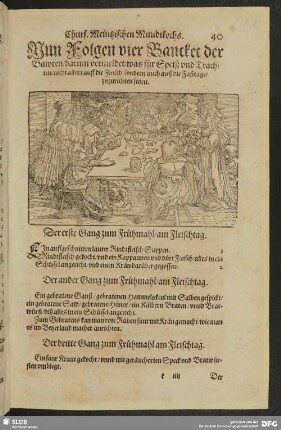 Churf. Meintzischen Mundtkochs. 40
Nun Folgen vier Bancket der
Bawren / darinn vermeldet was für Speiß vnd Trach-
ten nicht allein auff die Fleisch / sondern auch auff die Fasttage
zuzurichten seien.
Der erste Gang zum Frühmahl am Fleischtag.
Ein auffgeschnitten lauter Rindtfleisch Suppen. 1
Rindtfleisch gekocht / vnd ein Kappaunen vnd dürr Fleisch / alles in ein 2
Schüssel angericht / vnd einen Krän darüber gegossen.
Der ander Gang zum Frühmahl am Fleischtag.
Ein gebratene Ganß / gebratenen Hammelskeul mit Salben gespickt /
ein gebratene Saw / gebratene Hüner / ein Kälbern Braten / vnnd Brat-
würst / diß alles in ein Schüssel angericht.
Zum Gebratens kan man rote Rüben sauer mit Krän gemacht / wie man
es im Beyerland machet / anrichten.
Der dritte Gang zum Frühmahl am Fleischtag.
Ein sauer Kraut gekocht / vnnd mit geräuchertem Speck vnd Bratwür-
sten vmblegt.
k iiij Der
SLUB
DFG